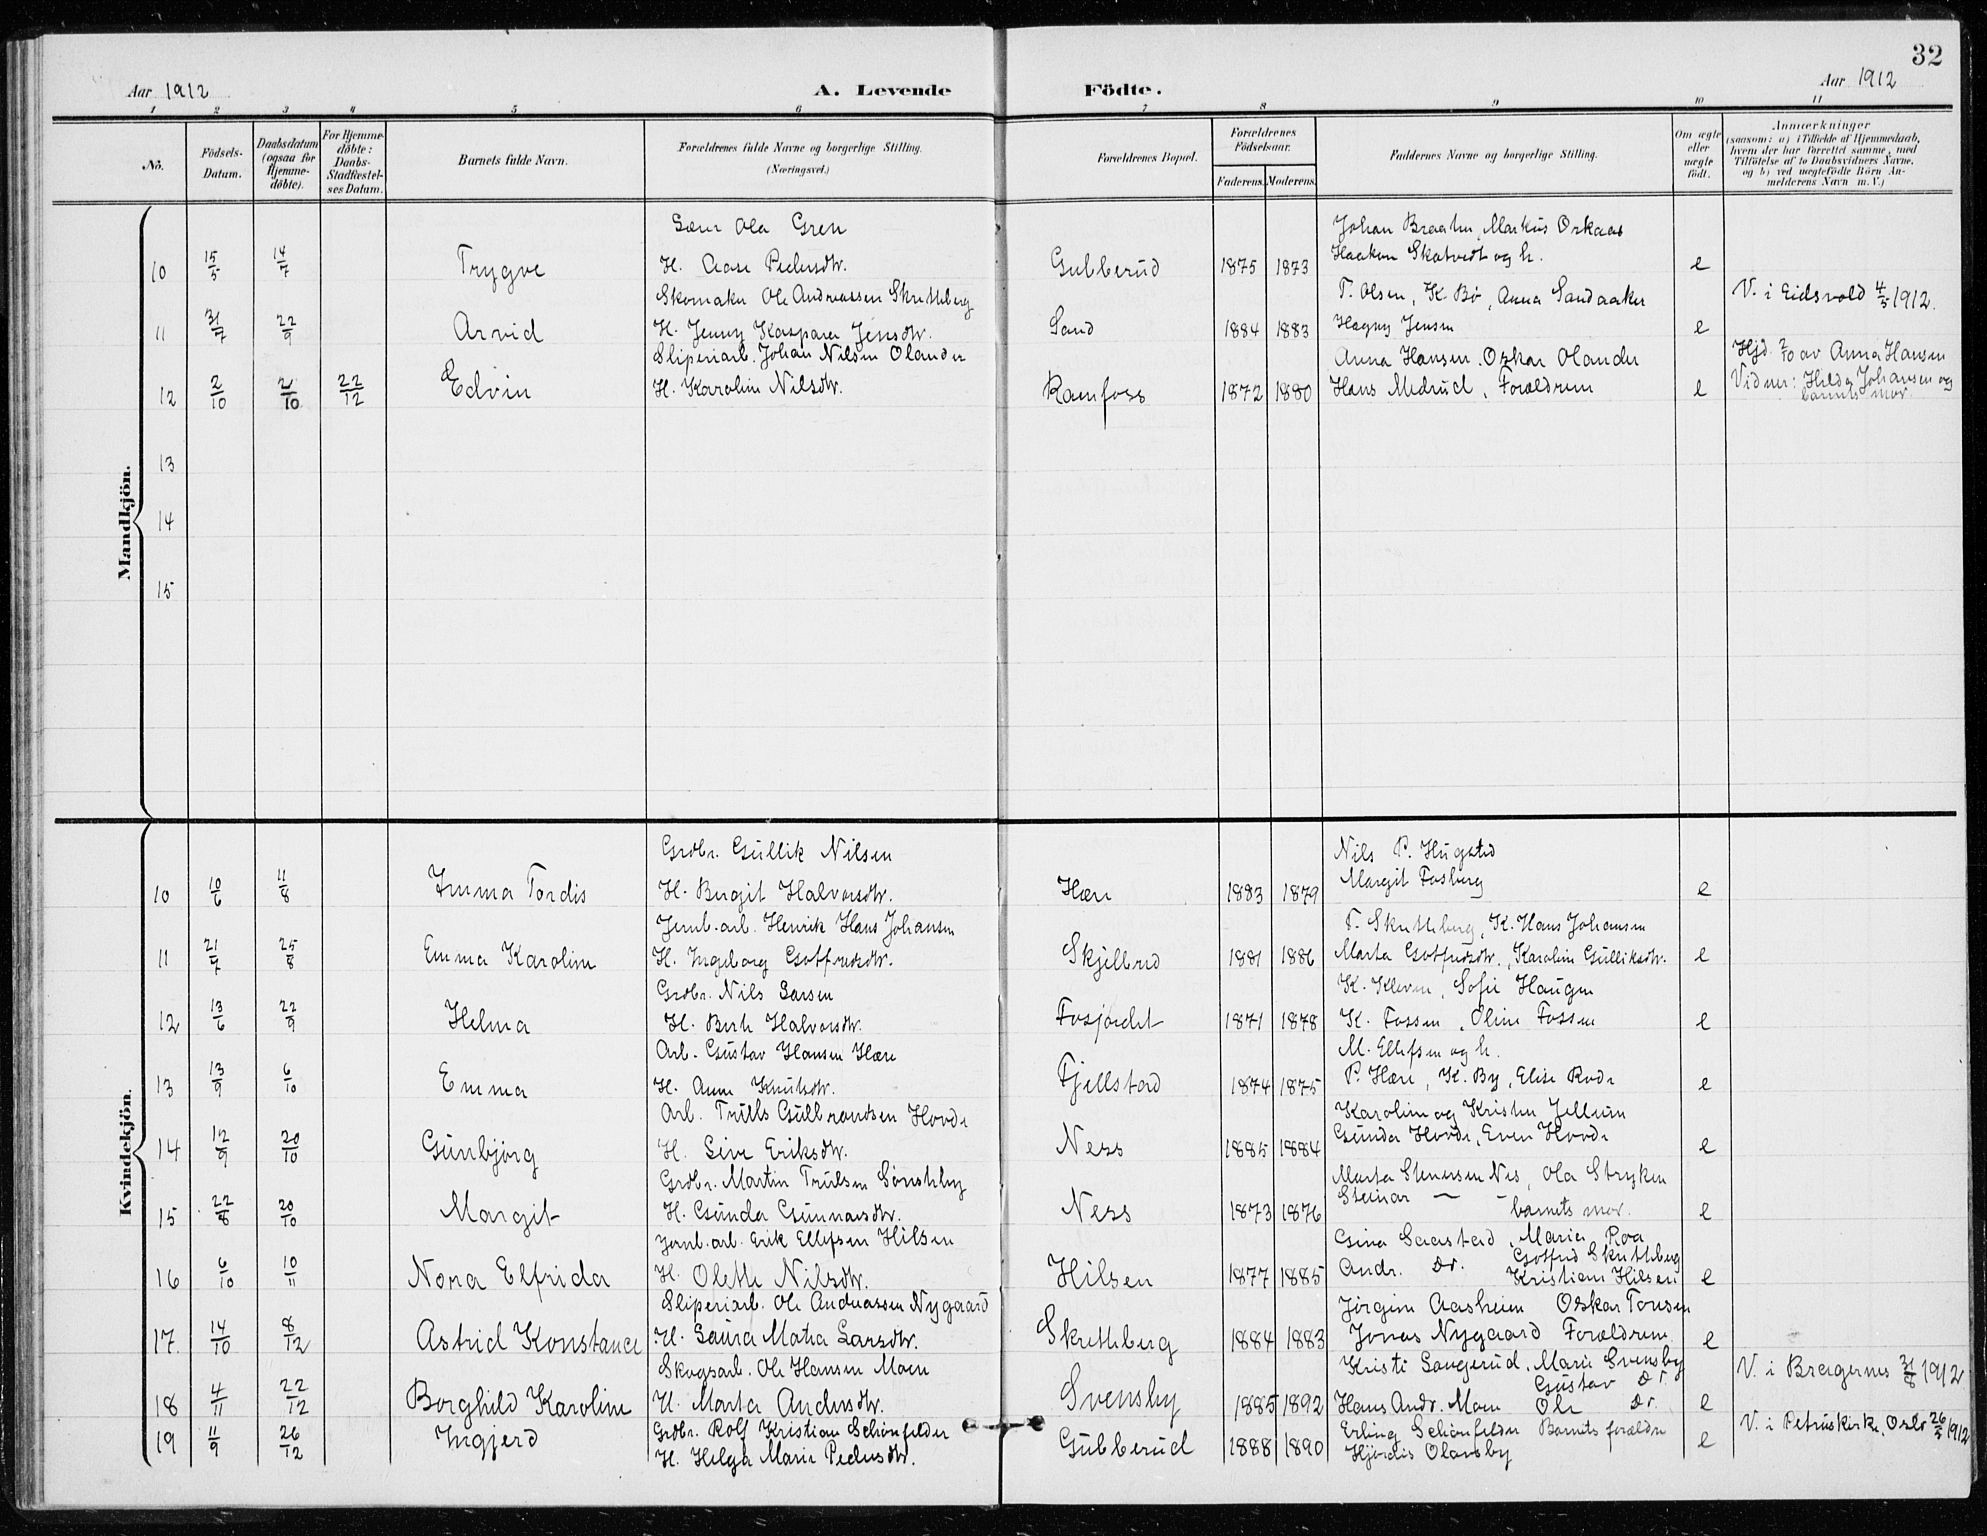 32
Aar 1912 A. Levende Födte. Aar 1912
1 2 3 4 5 6 7 8 9 10 11
No. Födsels-Datum. Daabsdatum (ogsaa for Hjemme-döbte). For Hjemme-döbte: Daabs-Stadfæstel-ses Datum. Barnets fulde Navn. Forældrenes fulde Navne og borgerlige Stilling. (Næringsvei.) Forældrenes Bopæl. Forældrenes Födselsaar. Faderens. Moderens. Faddernes Navne og borgerlige Stilling. Om ægte eller uægte födt. Anmærkninger (saasom: a) i Tilfælde af Hjemmedaab, hvem der har forrettet samme, med Tilföielse af to Daabsvidners Navne, og b) ved uægtefödte Börn An-melderens Navn m. V.)
Mandkjön.
Ola Gren Johan Braaten, Markus Oskaas
10 15/5 14/7 Trygve H. Aase Pedersdtr. Gubberud 1875 1873 Haakon Skatvedt og h. e
Skomaker Ole Andreassen Skretteberg T. Olsen, K. Bø, Anna Sandaaker V. i Eidsvold 4/5 1912.
11 31/7 22/9 Arvid H. Jenny Kaspara Jensdtr. Sand 1884 1883 Hagny Jensen e
Sliperiarb. Johan Nilsen Olander Anna Hansen. Oskar Olander Hjd. 2/10 av Anna Hansen
12 2/10 2/10 22/12 Edvin H. Karoline Nilsdtr. Ramfoss 1872 1880 Hans Medrud, Forældrene e Vidner: Hilda Johansen og
barnets mor.
13
14
15
Kvindekjön.
Grdbr. Gullik Nilsen Nils P. Hugsted
10 10/6 11/8 Imma Tordis H. Birgit Halvorsdtr. Hære 1883 1879 Margit Fosberg e
Jernb.arb. Henrik Hans Johansen T. Skretteberg, K. Hans Johansen
11 21/7 25/8 Emma Karoline H. Ingeborg Gotfredsdtr. Skjelbred 1881 1886 Marta Gotfredsdtr., Karoline Gulliksdtr. e
Grdbr. Nils Larsen K. Kleven, Sofie Haugen
12 13/6 22/9 Helma H. Berte Halvorsdtr. Fosjordet 1871 1878 K. Fossen, Oline Fossen e
Arb. Gustav Hansen Hære M. Ellefsen og h.
13 13/9 6/10 Emma H. Anne Knutsdtr. Fjellstad 1874 1875 P. Hære, K. By, Elise Rude e
Arb. Truls Gulbrandsen Hovde Karoline og Kristen Jellum
14 12/9 20/10 Gunbjørg H. Sive Eriksdtr. Ness 1885 1884 Gunda Hovde, Even Hovde e
Grdbr. Martin Trulsen Sønsteby Marta Stenersen Nes, Ola Stryken
15 22/8 20/10 Margit H. Gunda Gunnarsdtr. Ness 1873 1876 Steinar — - barnets mor. e
Jernb.arb. Erik Ellefsen Hilsen Gina Saastad, Maria Roa
16 6/10 10/11 Nora Elfrida H. Olette Nilsdtr. Hilsen 1877 1885 Andr. Do. Gotfred Skretteberg Kristian Hilsen e
Sliperiarb. Ole Andreassen Nygaard Jørgine Aasheim Oskar Tonsen
17 14/10 8/12 Astrid Konstance H. Laura Matea Larsdtr. Skretteberg 1884 1883 Jonas Nygaard Forældrene e
Skogsarb. Ole Hansen Moen Kristi Langerud, Marie Svensby V. i Bragernes 31/8 1912
Gustav Do.
18 4/11 22/12 Borghild Karoline H. Marta Andersdtr. Svensby 1885 1892 Hans Andr. Moen Ole Do. e
Grdbr. Rolf Kristian Schönfelder Erling Schönfelder Barnets forældre V. i Petruskirke, Oslo 26/5 1912
19 11/9 26/12 Ingjerd H. Helga Marie Pedersdtr. Gubberud 1888 1890 Hjørdis Olansby e